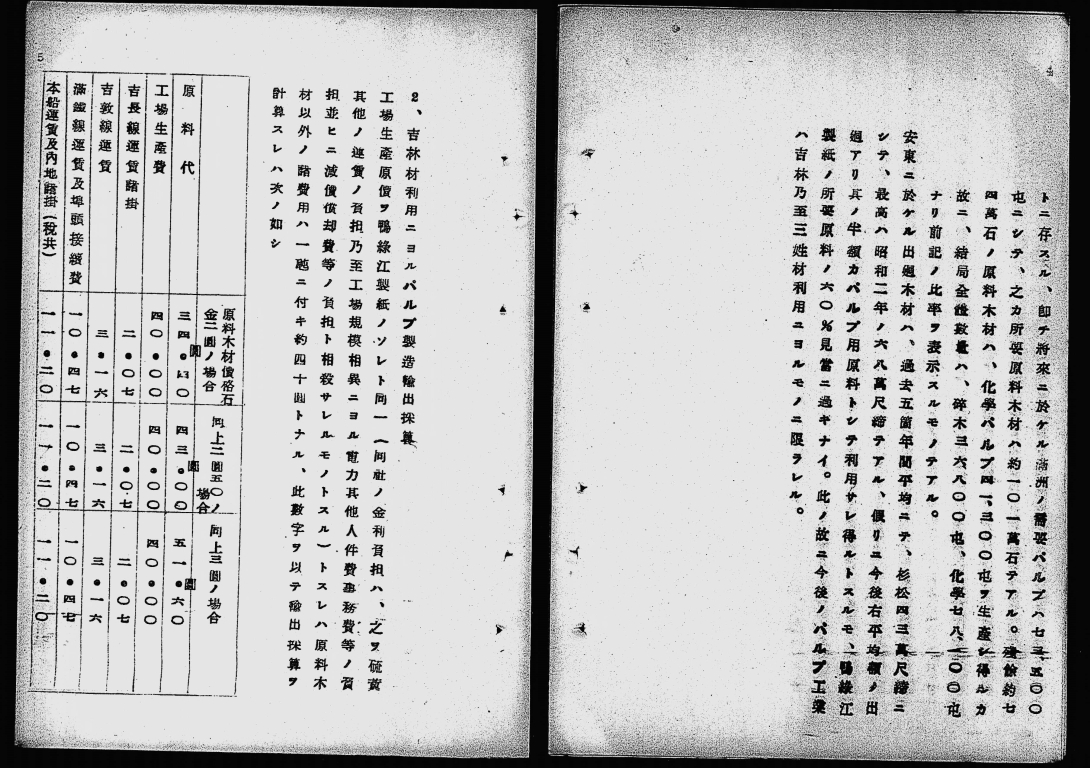 トニ存スル、卽チ將來ニ於ケル滿洲ノ需要パルプハ七三五〇〇
屯ニシテ、之カ所要原料木材ハ約一〇一萬石テアル。殘餘約七
四萬石ノ原料木材ハ、化學パルプ四一、三〇〇屯ヲ生產シ得ルカ
故ニ、結局全體數量ハ、碎木三六八〇〇屯、化學七八、一〇〇屯
ナリ前記ノ比率ヲ表示スルモノテアル。
安東ニ於ケル出廻木材ハ、過去五箇年間平均ニテ、杉松四三萬尺締ニ
シテ、最高ハ昭和二年ノ六八萬尺締テアル、假リニ今後右平均額ノ出
廻アリ其ノ半額カパルプ用原料トシテ利用サレ得ルトスルモ、鴨綠江
製紙ノ所要原料ノ六〇%見當ニ過ギナイ。此ノ故ニ今後ノパルプ工業
ハ吉林乃至三姓材利用ニヨルモノニ限ラレル。
2、吉林材利用ニヨルパルプ製造輸出採算
工場生產原價ヲ鴨綠江製紙ノソレト同一(同社ノ金利負担ハ、之ヲ硫黃
其他ノ運賃ノ負担乃至工場規模相異ニヨル電力其他人件費事務費等ノ負
担並ヒニ減價償却費等ノ負担ト相殺サレルモノトスル)トスレハ原料木
材以外ノ諸費用ハ一砘ニ付キ約四十圓トナル、此數字ヲ以テ輸出採算ヲ
計算スレハ次ノ如シ
原料木材價格石金二圓ノ場合
同上二圓五〇ノ場合
同上三圓ノ場合
原料代 三四・四〇圓 四三・〇〇圓 五一・六〇圓
工場生產費 四〇・〇〇 四〇・〇〇 四〇・〇〇
吉長線運賃諸掛 二・〇七 二・〇七 二・〇七
吉敦線運賃 三・一六 三・一六 三・一六
滿鐵線運賃及埠頭接續費 一〇・四七 一〇・四七 一〇・四七
本船運賃及內地諸掛(稅共) 一一・二〇 一一・二〇 一一・二〇
5